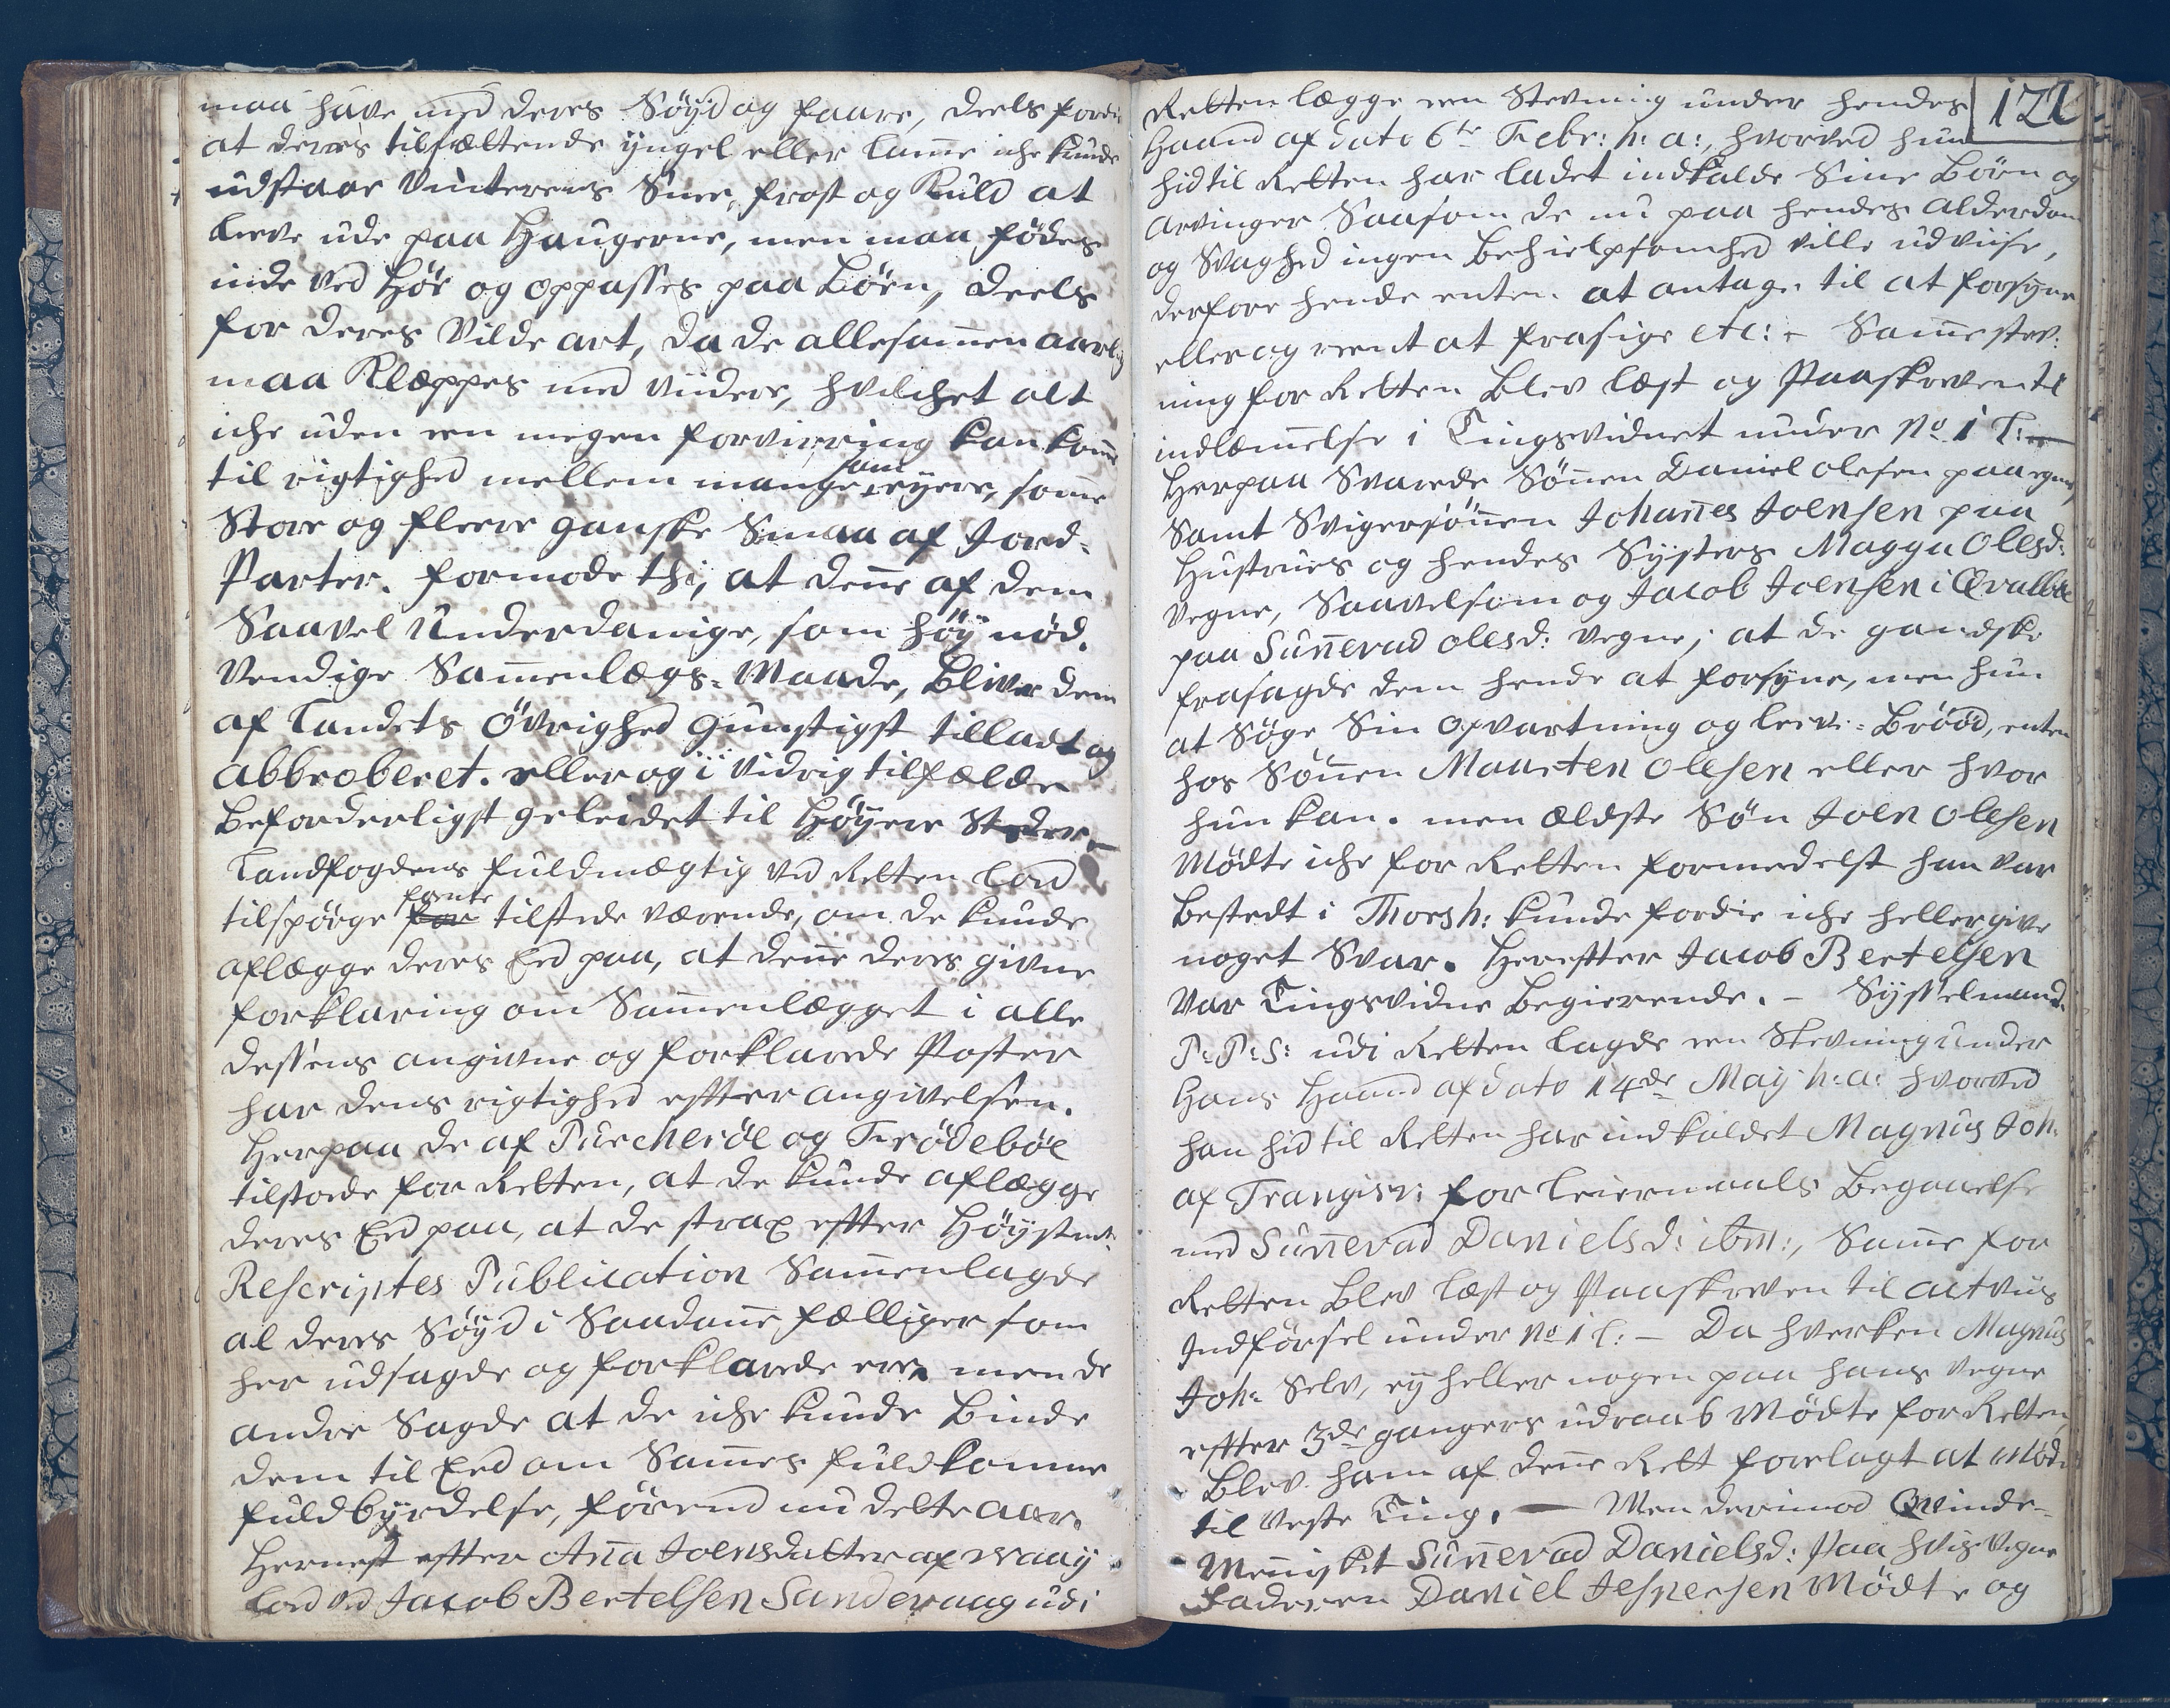 maa have med deres Søyd og faare, deels fordi
at deres tilfaldende ÿngel eller lamme iche kunde
udstaae Vinterens Snee, frost og Kuld at
leeve ude paa Haugerne, men maa fødes
inde ved Høe og oppasses paa Böen, deels
for deres Vilde art, da de allesammen aarlig
maa Klæppes med videre, hvilchet alt
iche uden een megen forvirring kan komme
til rigtighed mellem mange som eÿere, somme
Store og fleere ganske Smaa af Jord-
Parter. formode thi, at denne af dem
Saavel Underdanige, som høÿ nød-
vendige Sammenlægs-Maade, bliver dem
af Landets Øvrighed gunstigst tilladt og
abbroberet. eller og i vidrig tilfælde
beforderligst geleidet til Høÿere Steder
Landfogdens fuldmægtig ved Retten lod
tilspørge for tilstede værende, om de kunde
aflægge deres Eed paa, at denne deres givne
forklaring om Sammenlægget i alle
dessens angivne og forklarede Poster
har dens rigtighed effter angivelsen.
Herpaa de af Purcheröe og Frödebõe
tilstoede for Retten, at de kunde aflægge
deres Eed paa, at de strax effter Høÿstnt:
Rescriptes Publication Sammenlagde
al deres Søÿd i Saadanne fælliger som
her udsagde og forklarede ere, men de
andre Sagde at de iche kunde binde
dem til Eed om Sammes fuldkomne
fuldbÿrdelse, førend nu dette aar.
Hernest effter Anna Joensdatter af Waaÿ
lod ved Jacob Bertelsen Sandevaag udi
121
Retten lægge een Stevning under hendes
Haand af dato 6te Febr: h: a:, hvorved hun
hidtil Retten har ladet indkalde Sine Børn og
Arvinger Saasom de nu paa hendes Alderdom
og Svaghed ingen behielpsomhed ville udviise,
derfore hende enten at antage til at forsÿne
eller og reent at frasige etc: - Samme stev-
ning for Retten blev læst og Paaskreven til
indlemmelse i Tingsvidnet under No 1 T:
Herpaa Svarede Sønnen Daniel Olesen paa egne,
Samt Svigersønnen Johannes Joensen paa
Hustrues og hendes Sÿsters Magga Olesd:
vegne, Saavelsom og Jacob Joensen i Qvalbøe
paa Sunnevad Olesd: Vegne, at de gandske
frasagde dem hende at forsÿne, men hun
at Søge Sin opvartning og leeve-Brööd, enten
hos Sønnen Maarten Olesen eller hvor
hun kan. men ældste Søn Joen Olesen
Mødte iche for Retten formedelst han var
bestedt i Thorsh: kunde fordie iche heller give
noget Svar. Hereffter Jacob Bertelsen
Var Tingsvidne begierende. - Sÿsselmand
P: P: S: udi Retten lagde een Stevning under
Hans Haand af dato 14de Maÿ h: a: hvorved
han hid til Retten har indkaldet Magnus Joh:
af Frangisv: for Leiermaals Begaaelse
med Sunnevad Danielsd: ibm:, Samme for
Retten blev læst og Paaskreven til act viis
Indførsel under No 1 L: - Da hverken Magnus
Joh: Selv, eÿ heller nogen paa hans Vegne
effter 3de gangers udraab Mødte for Retten,
blev ham af denne Rett forelagt at Møde
til neste Ting. — Men derimod Qvinde-
Mennisket Sunnevad Danielsd: Paa hvis Vegne
Faderen Daniel Jespersen Mødte og